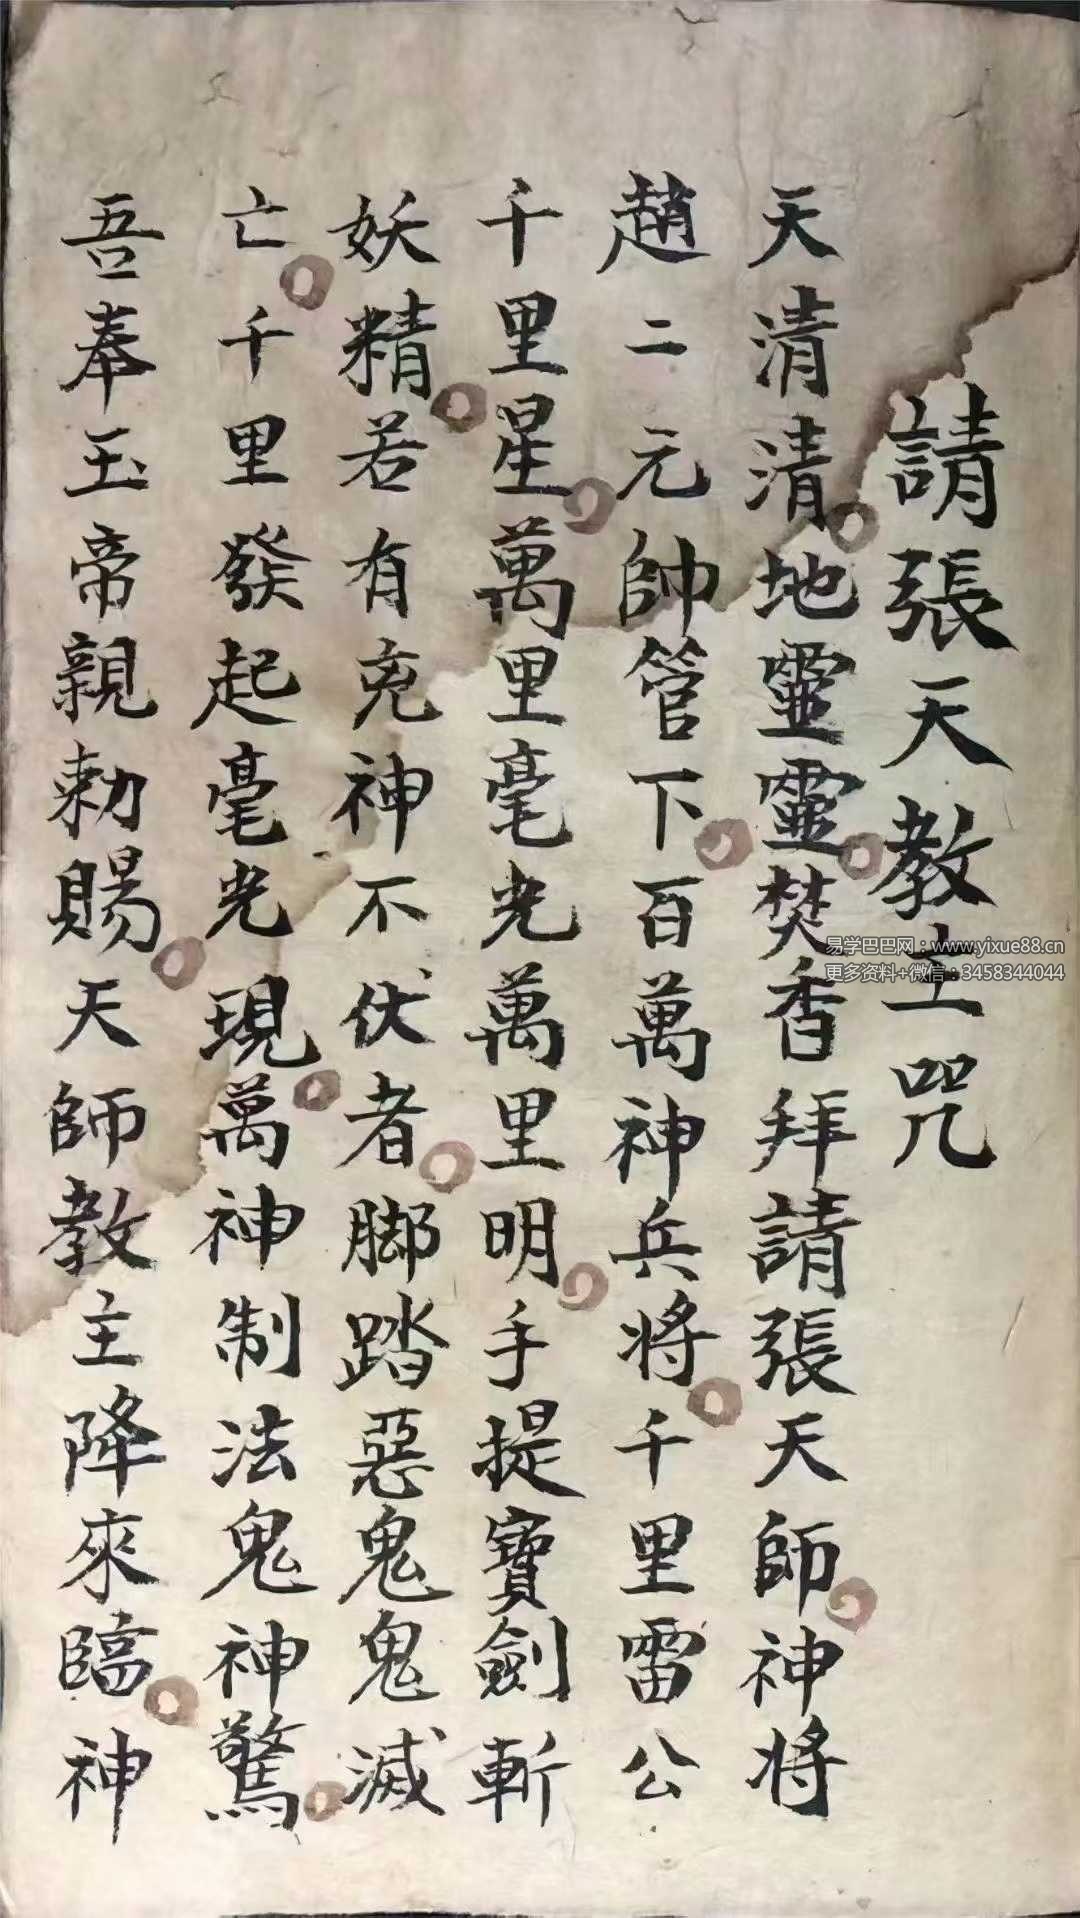 請張天教主咒
天清清地靈靈焚香拜請張天師神将
趙二元帥管下百萬神兵将千里雷公
千里星萬里毫光萬里明手提寶劍斬
妖精若有兇神不伏者脚踏惡鬼鬼滅
亡千里發起毫光現萬神制法鬼神驚
吾奉玉帝親勅賜天師教主降來臨神
易学巴巴网：www.yixue88.cn
更多资料+微信：3458344044